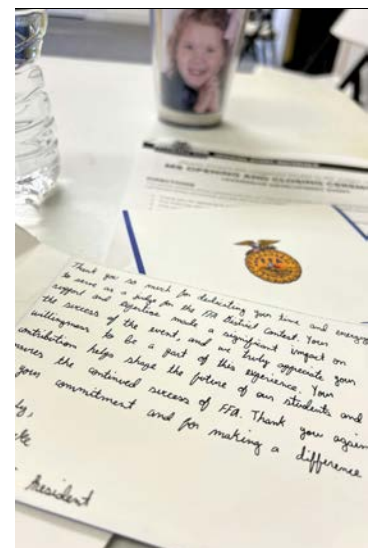 MS OPENING AND CLOSING CEREM
DIRECTIONS
Thank you so much for dedicating your time and energy
to serve as a judge for the FFA District Contest. Your
support and expertise made a significant impact on
the success of the event, and we truly appreciate your
willingness to be a part of this experience. Your
contribution helps shape the future of our students and
the continued success of FFA. Thank you again
your commitment and for making a difference
President